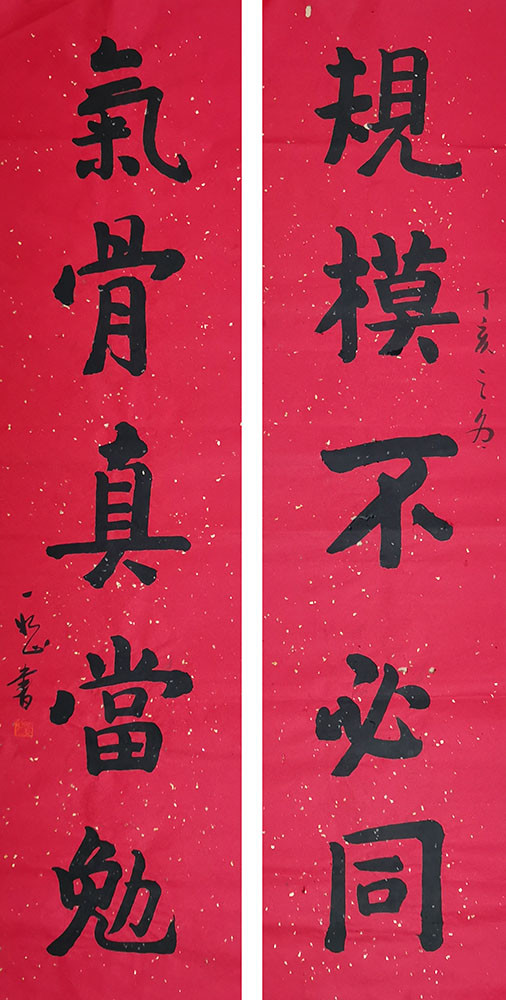 規模不必同
丁亥之冬
氣骨真當勉
書